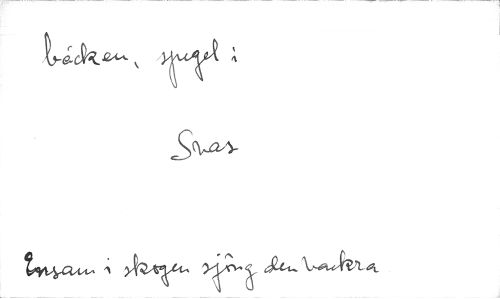 bäcken, spegel i
Snas
Ensam i skogen sjöng den vackra